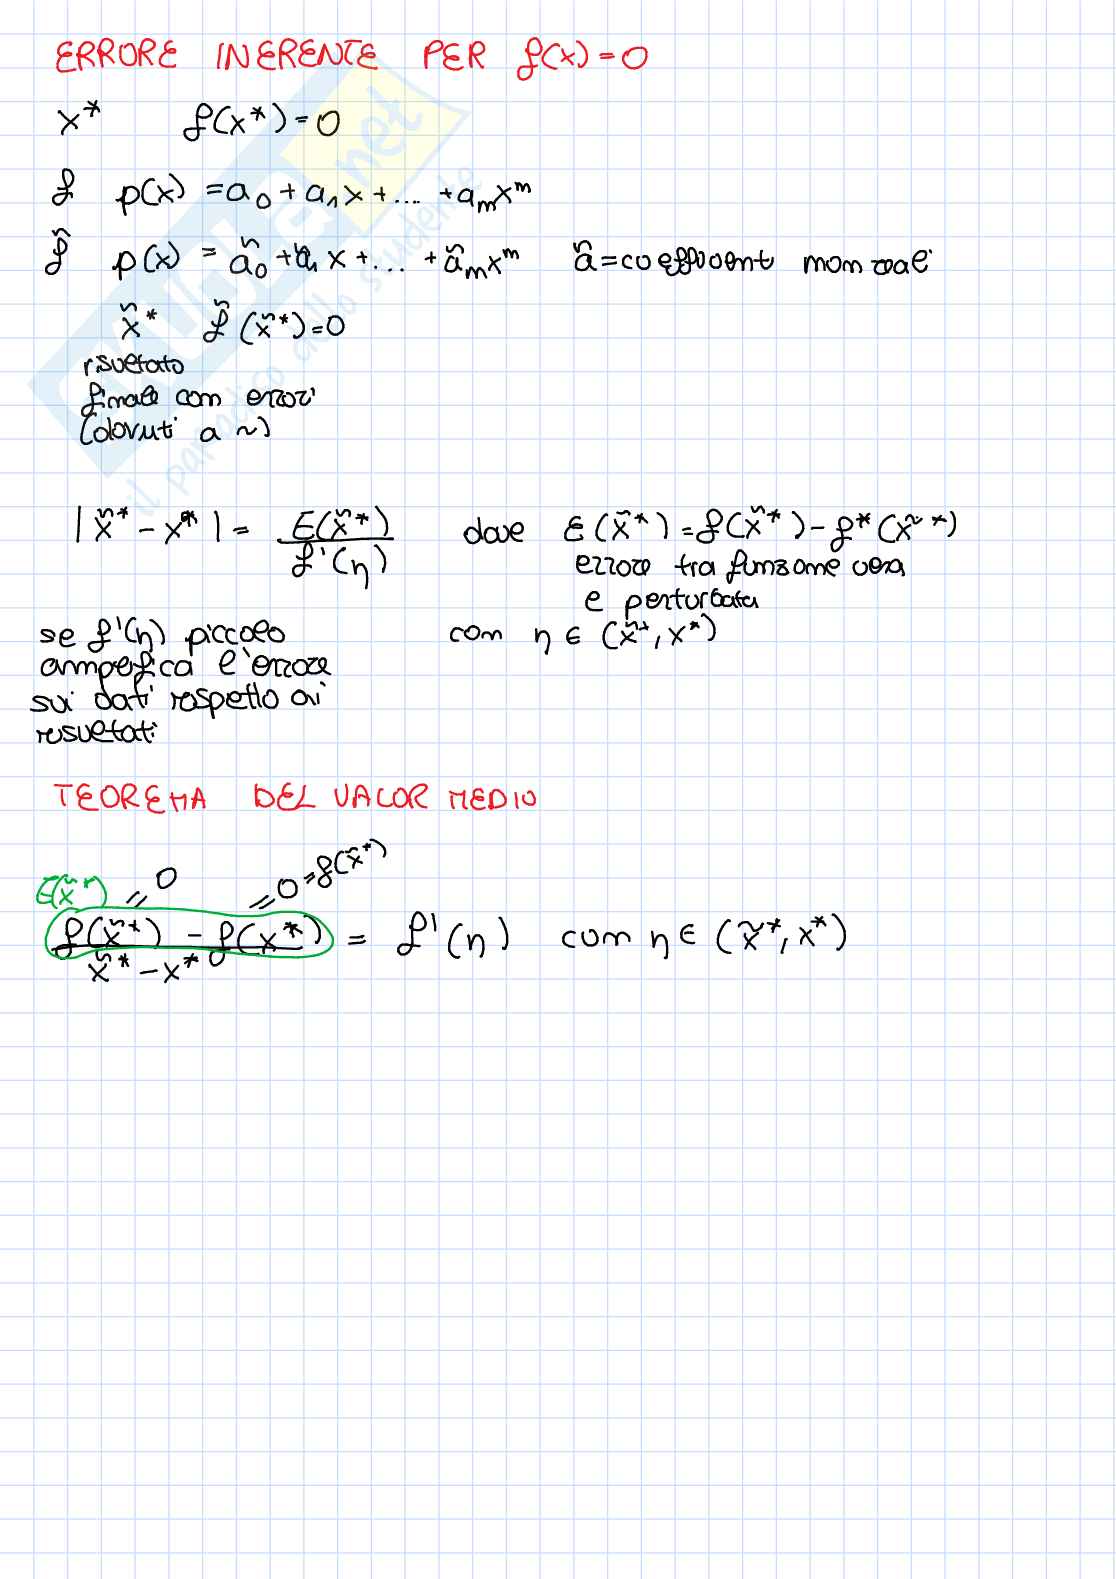 ERRORE INERENTE PER f(x)=0
x* f(x*)=0
f p(x) = a₀ + a₁x + ... + aₘxᵐ
f̃ p(x) = ã₀ + ã₁x + ... + ãₘxᵐ ã = coefficienti non reali
x̃* f̃(x̃*)=0
risultato
finale con errori
(dovuti a ~)
|x̃* - x*| = E(x̃*) / f'(η) dove E(x̃*) = f(x̃*) - f*(x̃*)
errore tra funzione vera
e perturbata
se f'(η) piccolo con η ∈ (x̃*, x*)
amplifica l'errore
sui dati rispetto ai
risultati
TEOREMA DEL VALOR MEDIO
E(x̃*) = 0 = 0 = f(x̃*)
f(x̃*) - f(x*) / x̃* - x* = f'(η) con η ∈ (x̃*, x*)
SKUOLA.net
il paradiso dello studente